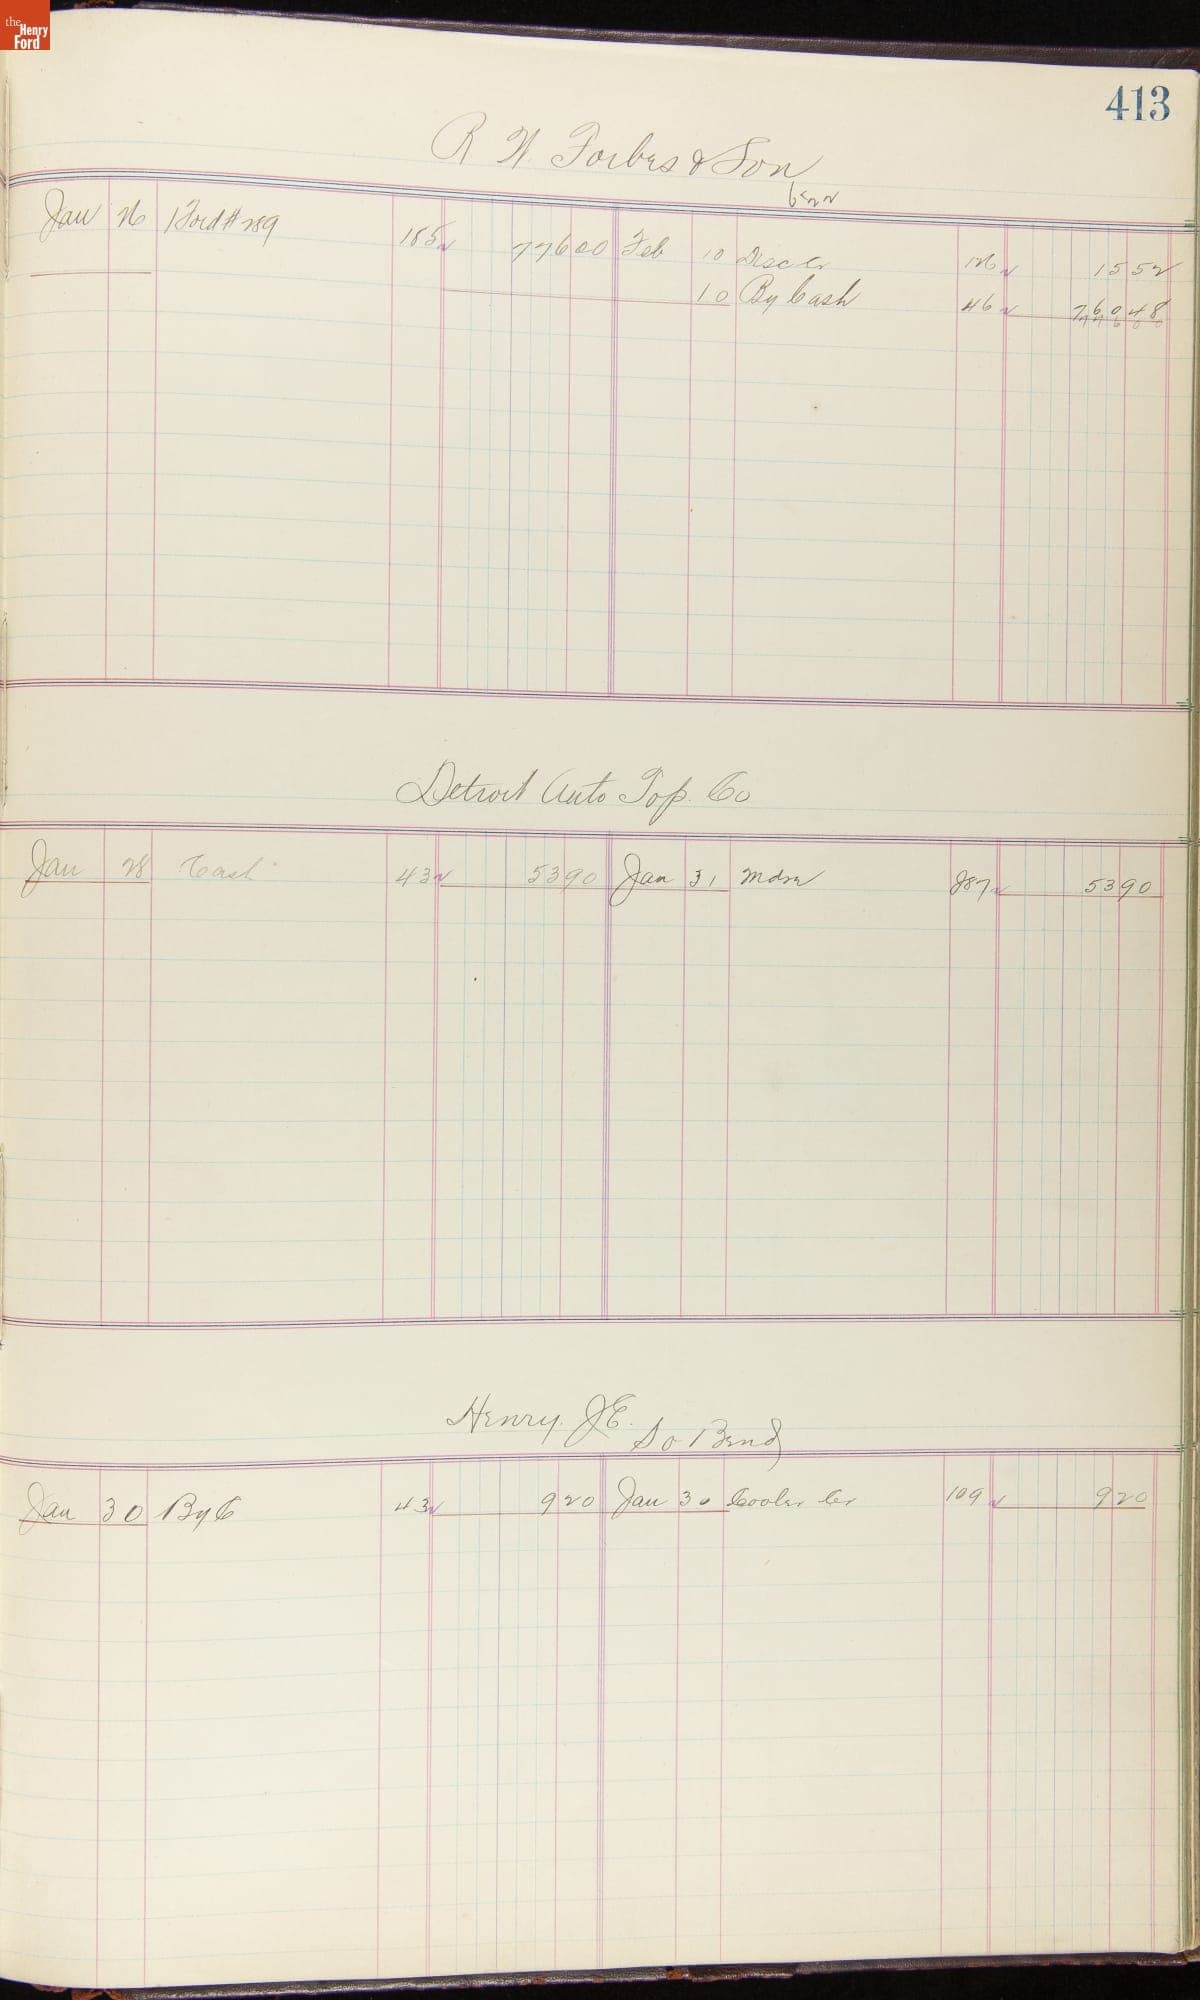 the Henry Ford
413
R W Forbes & Son
Jan 26 1 Ford # 289 185 776 00 Feb 10 Disc Cr 126 15 52
10 By Cash 46 760 48
776 00
Detroit Auto Top. Co
Jan 28 Cash 43 53 90 Jan 31 Mdse 287 53 90
Henry. J E.
So Bend
Jan 30 By C 43 9 20 Jan 30 Cooler Cr 109 9 20